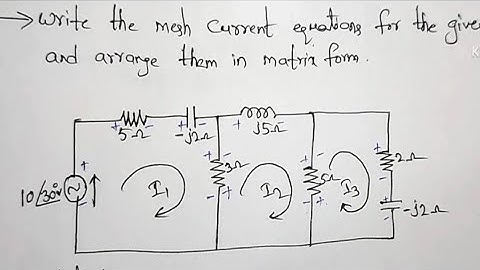 → Write the mesh current equations for the give
and arrange them in matrix form.
5Ω -j2Ω j5Ω
3Ω 5Ω 2Ω
I₁ I₂ I₃
10/30°v
-j2Ω